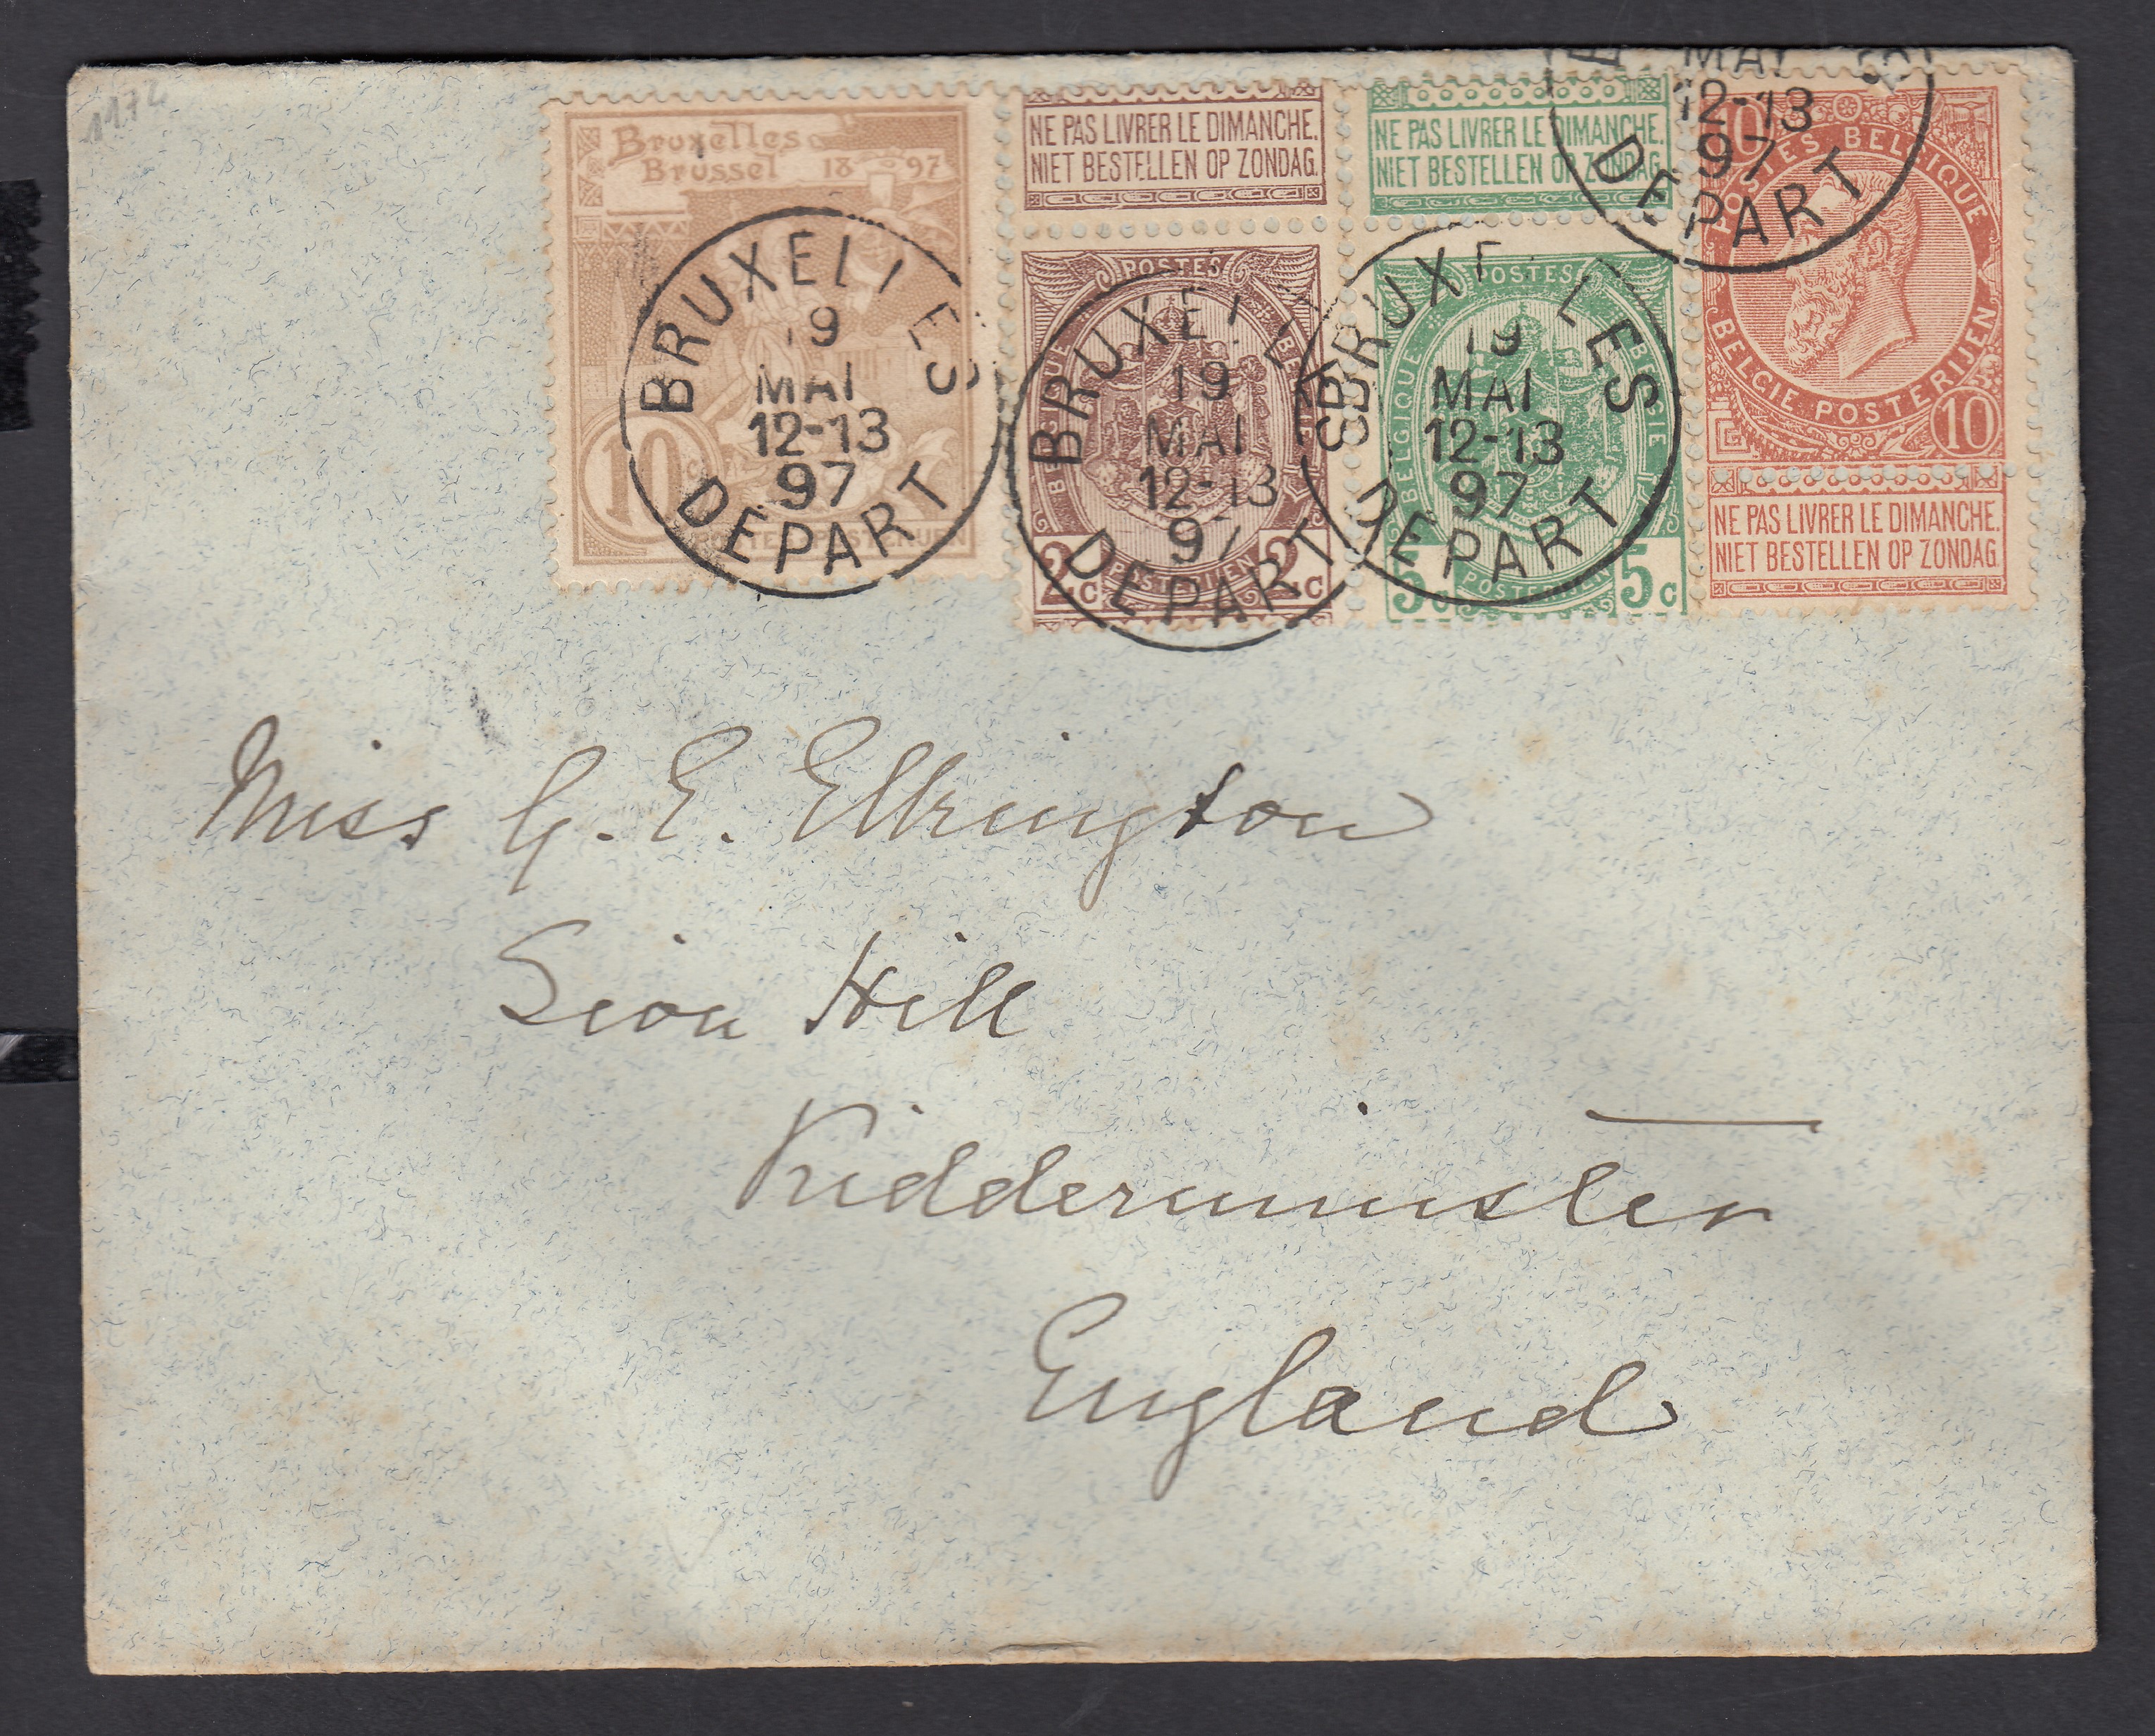 1172
Bruxelles
Brussel 1897
10
POSTES POSTERIJEN
NE PAS LIVRER LE DIMANCHE.
NIET BESTELLEN OP ZONDAG.
POSTES
BELGIQUE BELGIE
2c 2c
POSTERIJEN
NE PAS LIVRER LE DIMANCHE.
NIET BESTELLEN OP ZONDAG.
POSTES
BELGIQUE BELGIE
5c 5c
POSTERIJEN
10
POSTES BELGIQUE
BELGIE POSTERIJEN
10
NE PAS LIVRER LE DIMANCHE.
NIET BESTELLEN OP ZONDAG.
BRUXELLES
19
MAI
12-13
97
DEPART
BRUXELLES
19
MAI
12-13
97
DEPART
BRUXELLES
19
MAI
12-13
97
DEPART
MAI
12-13
97
DEPART
Miss G. E. Elkington
Sion Hill
Kidderminster
England